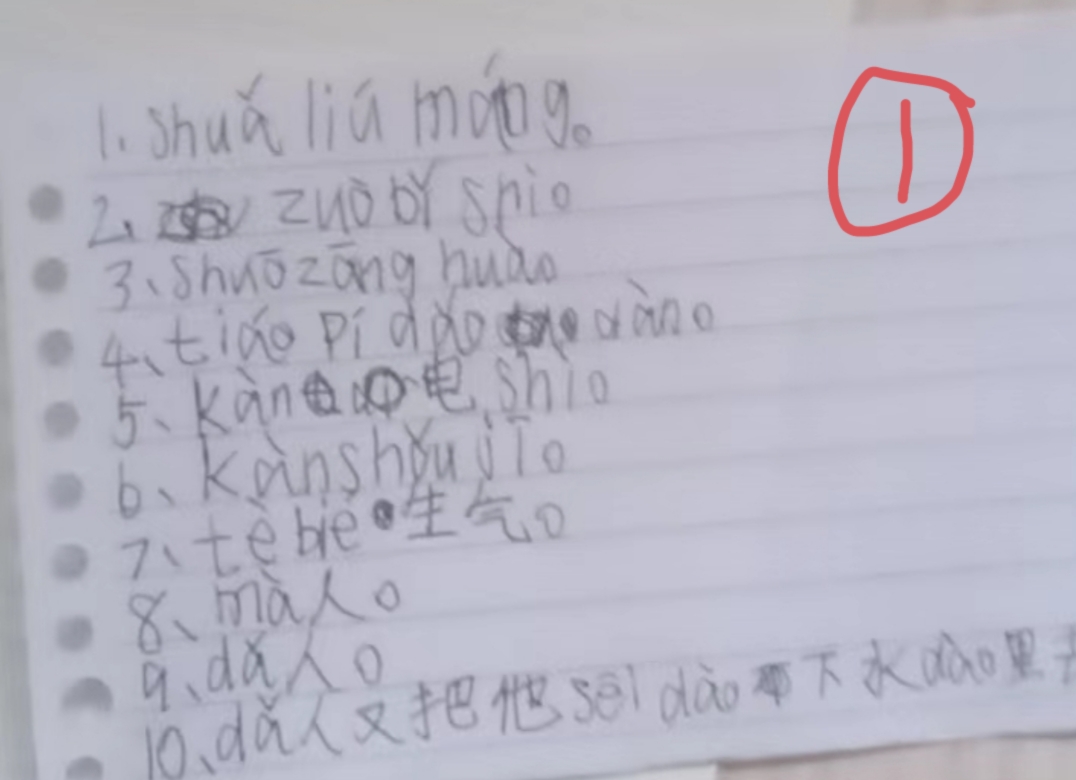 1. shuǎ liú máng。
①
2. zuò bǐ shì。
3、shuō zāng huà。
4、tiáo pí dǎo dàn。
5、kàn 电 shì。
6、kàn shǒu jī。
7、tè bié 生气。
8、mà 人。
9、dǎ 人。
10、dǎ 人又把他 sēi dào 下水 dào 里